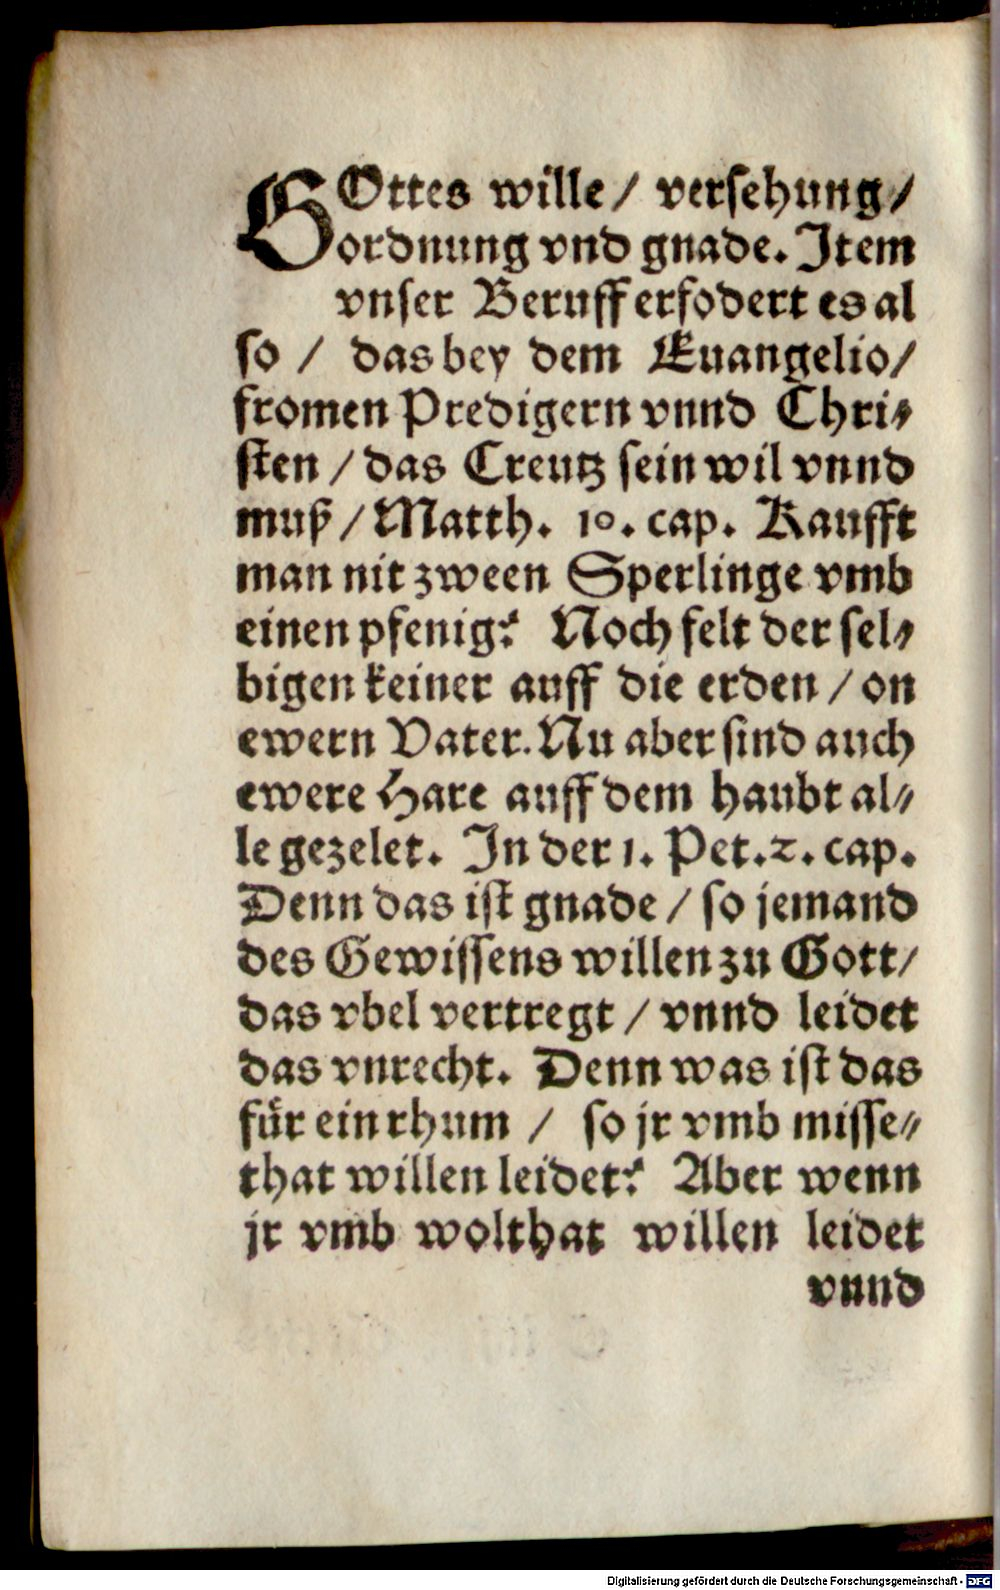 GOttes wille / versehung /
ordnung vnd gnade. Item
vnser Beruff erfodert es al
so / das bey dem Euangelio /
fromen Predigern vnnd Chri⸗
sten / das Creutz sein wil vnnd
muß / Matth. 10. cap. Kaufft
man nit zween Sperlinge vmb
einen pfenig? Noch felt der sel⸗
bigen keiner auff die erden / on
ewern Vater. Nu aber sind auch
ewere Hare auff dem haubt al⸗
le gezelet. In der 1. Pet. 2. cap.
Denn das ist gnade / so jemand
des Gewissens willen zu Gott /
das vbel vertregt / vnnd leidet
das vnrecht. Denn was ist das
für ein rhum / so jr vmb misse⸗
that willen leidet? Aber wenn
jr vmb wolthat willen leidet
vnnd
Digitalisierung gefördert durch die Deutsche Forschungsgemeinschaft - DFG